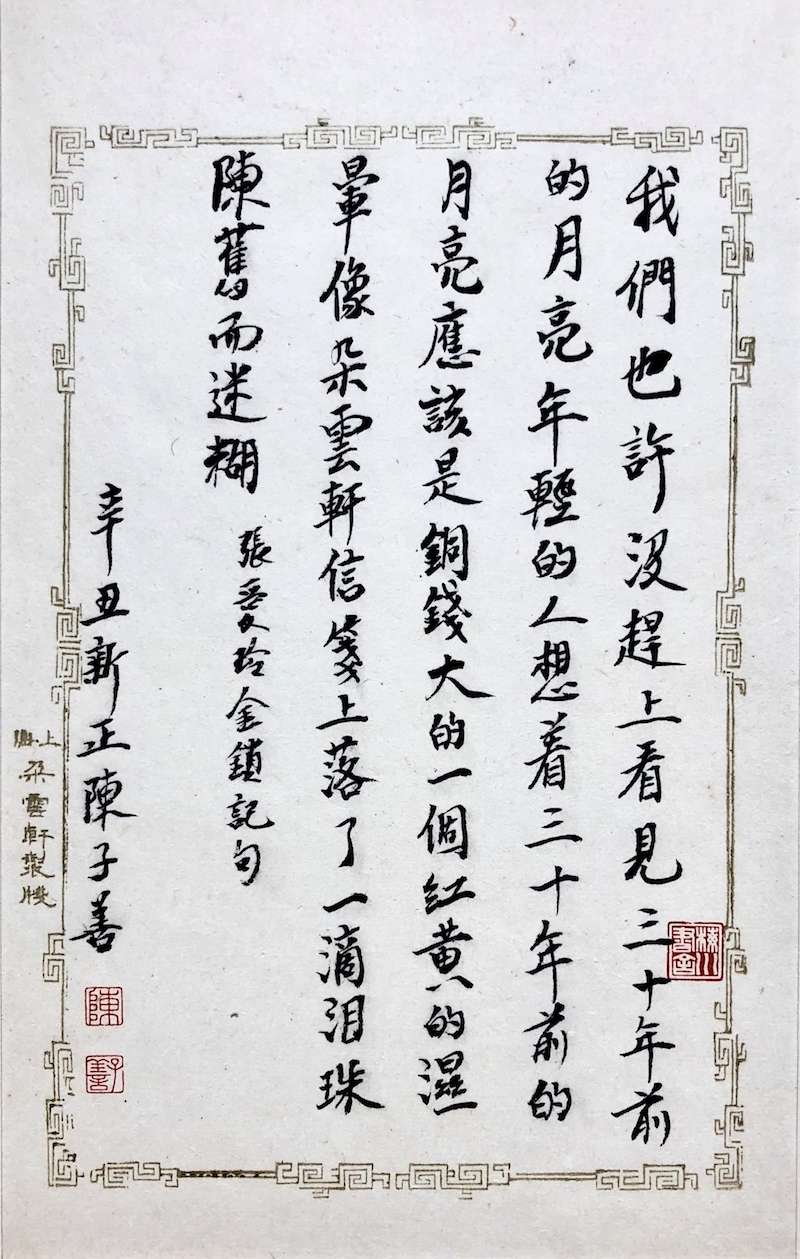 我們也許没趕上看見三十年前
的月亮年輕的人想着三十年前的
月亮應該是銅錢大的一個紅黄的濕
暈像朵雲軒信箋上落了一滴泪珠
陳舊而迷糊
張愛玲金鎖記句
辛丑新正陳子善
陳
子善
上海
朵雲軒製牋